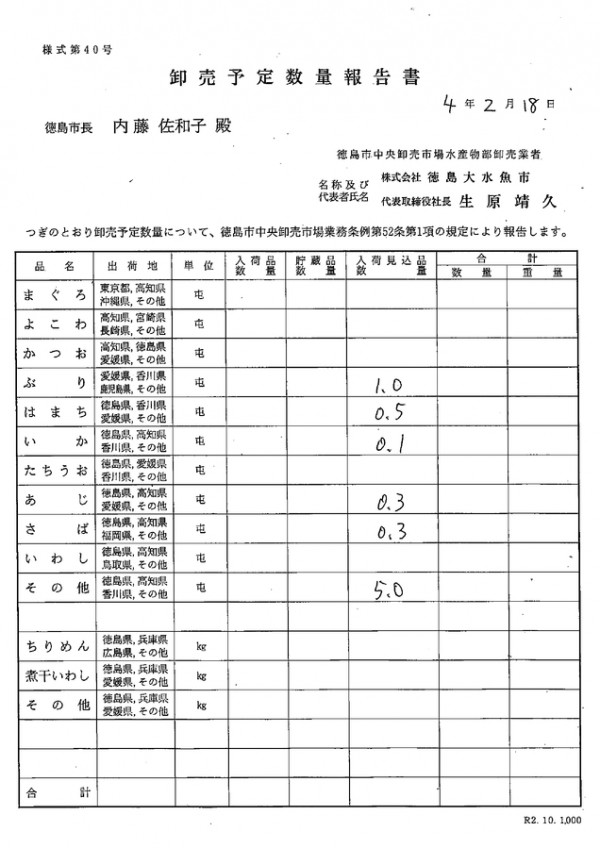 様式第40号
卸売予定数量報告書
4年2月18日
徳島市長 内藤 佐和子 殿
徳島市中央卸売市場水産物部卸売業者
名称及び 株式会社 徳島大水魚市
代表者氏名 代表取締役社長 生原靖久
つぎのとおり卸売予定数量について、徳島市中央卸売市場業務条例第52条第1項の規定により報告します。
品名 出荷地 単位 入荷品数量 貯蔵品数量 入荷見込品数量 合計 数量 重量
まぐろ 東京都, 高知県 屯
沖縄県, その他
よこわ 高知県, 宮崎県 屯
長崎県, その他
かつお 高知県, 徳島県 屯
愛媛県, その他
ぶり 愛媛県, 香川県 屯 1.0
鹿児島県, その他
はまち 徳島県, 香川県 屯 0.5
愛媛県, その他
いか 徳島県, 高知県 屯 0.1
香川県, その他
たちうお 徳島県, 愛媛県 屯
香川県, その他
あじ 徳島県, 高知県 屯 0.3
愛媛県, その他
さば 徳島県, 高知県 屯 0.3
福岡県, その他
いわし 徳島県, 高知県 屯
鳥取県, その他
その他 徳島県, 高知県 屯 5.0
香川県, その他
ちりめん 徳島県, 兵庫県 kg
広島県, その他
煮干いわし 徳島県, 兵庫県 kg
愛媛県, その他
その他 徳島県, 兵庫県 kg
愛媛県, その他
合計
R2. 10. 1,000